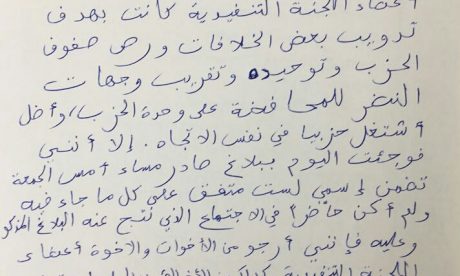 أعضاء اللجنة التنفيدية كانت بهدف
تدويب بعض الخلافات ورص صفوف
الحزب وتوحيده وتقريب وجهات
النضر للمحافضة على وحدة الحزب، وأضل
أشتغل حزبيا في نفس الاتجاه. إلا أنني
فوجئت اليوم ببلاغ صادر مساء أمس الجمعة
تضمن إسمي لست متفق على كل ما جاء فيه
ولم أكن حاضراً في الاجتماع الذي نتج عنه البلاغ المذكور
وعليه فإنني أرجو من الأخوات والاخوة أعضاء
اللجنة التنفيدية